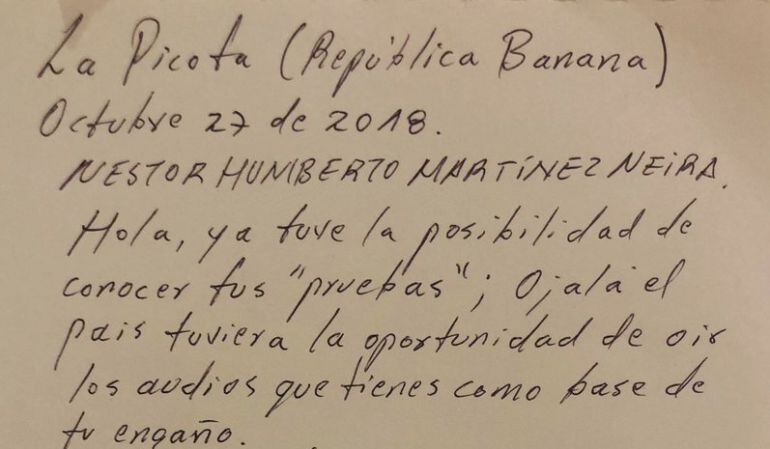 La Picota (República Banana)
Octubre 27 de 2018.
NESTOR HUMBERTO MARTíNEZ NEiRA.
Hola, ya tuve la posibilidad de
conocer tus "pruebas"; Ojalá el
pais tuviera la oportunidad de oir
los audios que tienes como base de
tu engaño.